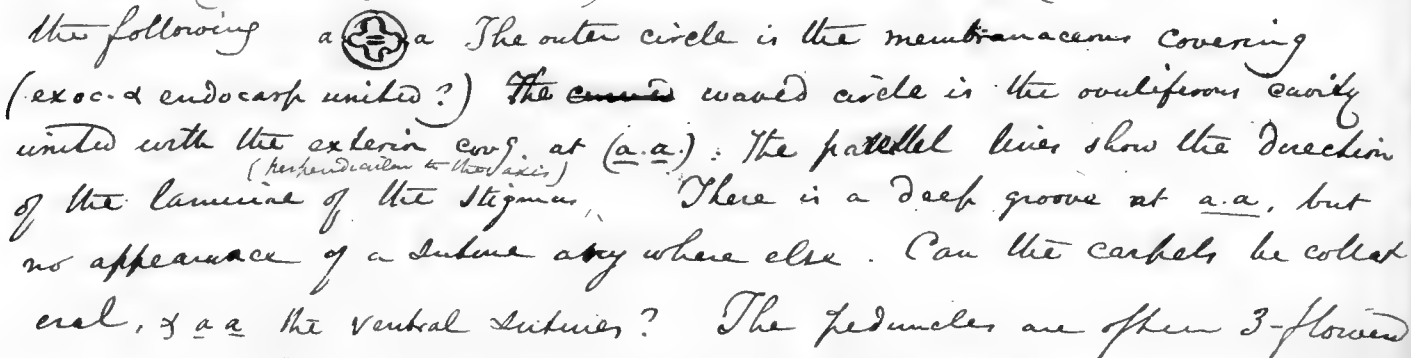 the following a a The outer circle is the membranaceous covering
(exoc. & endocarp united?) The waved circle is the ovuliferous cavity
united with the exterior covg. at (a.a.). The parellel lines show the direction
(perpendicular to the axis)
of the laminae of the stigmas, There is a deep groove at a.a, but
no appearance of a suture any where else. Can the carpels be collat
eral, & a a the ventral sutures? The peduncles are often 3-flowered